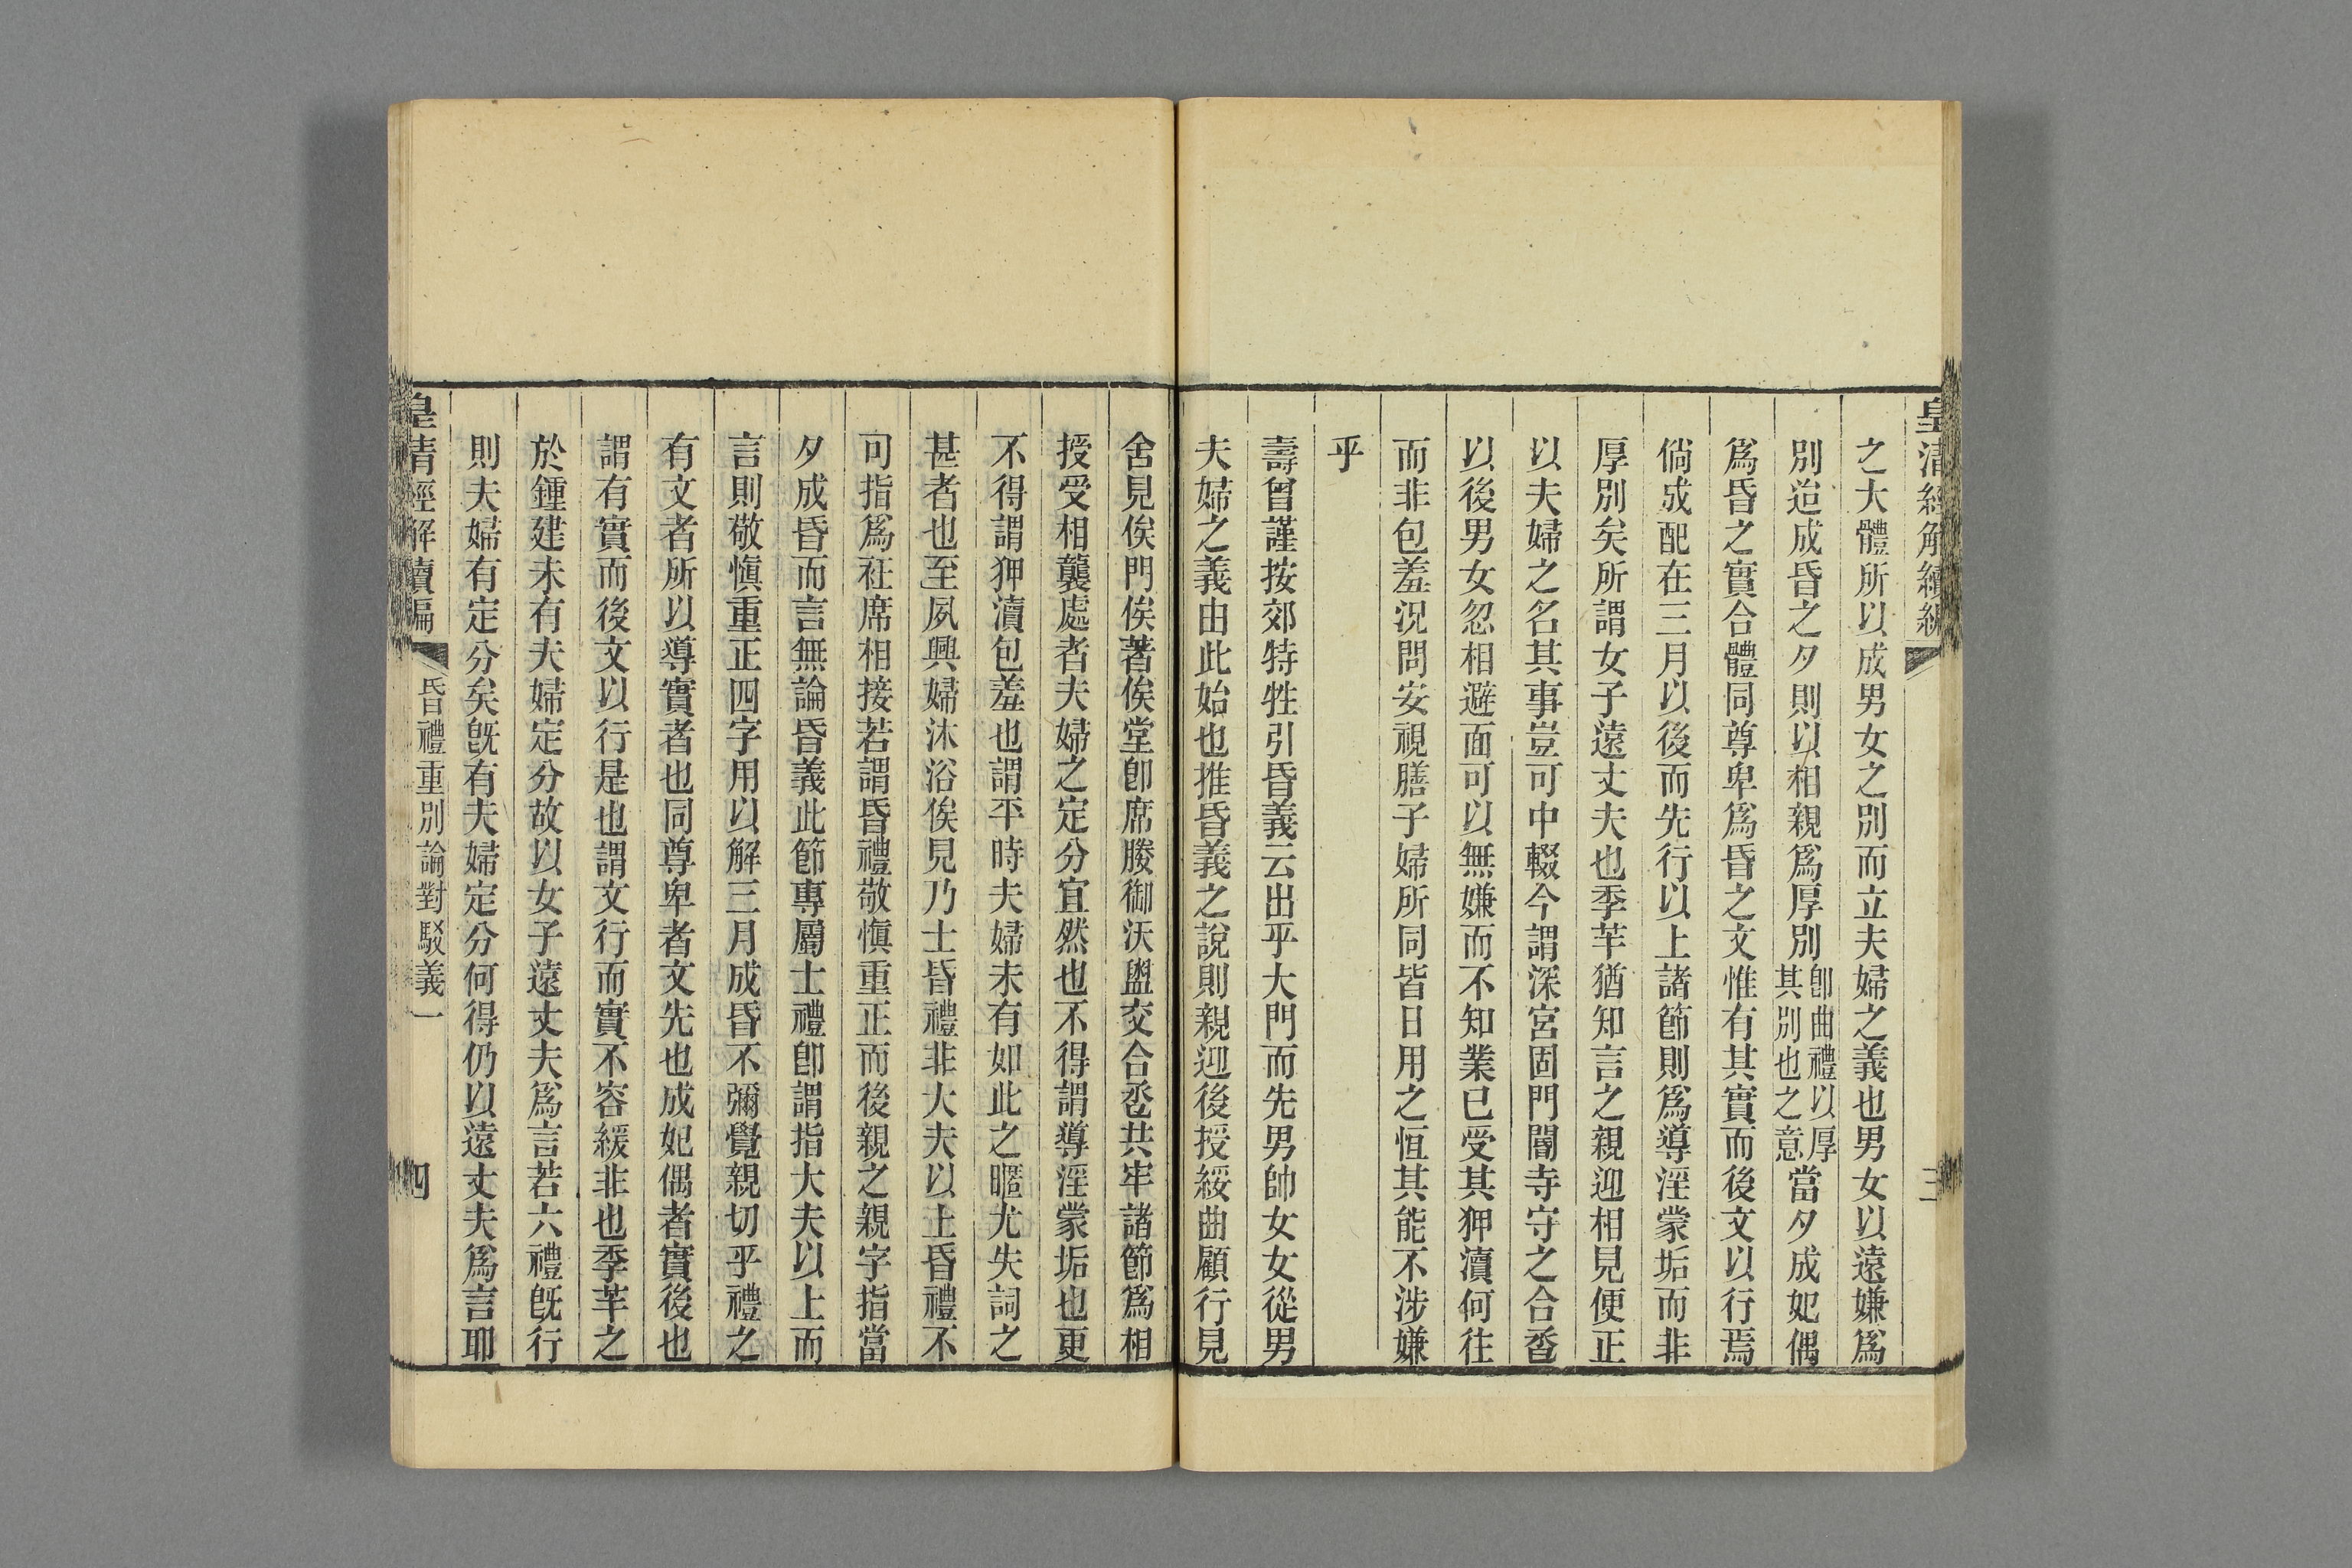 皇清經解續編
三
之大體所以成男女之別而立夫婦之義也男女以遠嫌爲
別迨成昏之夕則以相親爲厚別卽曲禮以厚其別也之意當夕成妃偶
爲昏之實合體同尊卑爲昏之文惟有其實而後文以行焉
倘成配在三月以後而先行以上諸節則爲導淫蒙垢而非
厚別矣所謂女子遠丈夫也季芉猶知言之親迎相見便正
以夫婦之名其事豈可中輟今謂深宮固門閽寺守之合卺
以後男女忽相避面可以無嫌而不知業已受其狎瀆何往
而非包羞況問安視膳子婦所同皆日用之恒其能不涉嫌
乎
壽曾謹按郊特牲引昏義云出乎大門而先男帥女女從男
夫婦之義由此始也推昏義之說則親迎後授綏曲顧行見
舍見俟門俟著俟堂卽席媵御沃盥交合巹共牢諸節爲相
授受相襲處者夫婦之定分宜然也不得謂導淫蒙垢也更
不得謂狎瀆包羞也謂平時夫婦未有如此之暱尤失詞之
甚者也至夙興婦沐浴俟見乃士昏禮非大夫以上昏禮不
可指爲衽席相接若謂昏禮敬愼重正而後親之親字指當
夕成昏而言無論昏義此節專屬士禮卽謂指大夫以上而
言則敬愼重正四字用以解三月成昏不彌覺親切乎禮之
有文者所以導實者也同尊卑者文先也成妃偶者實後也
謂有實而後文以行是也謂文行而實不容緩非也季芉之
於鍾建未有夫婦定分故以女子遠丈夫爲言若六禮旣行
則夫婦有定分矣旣有夫婦定分何得仍以遠丈夫爲言耶
皇清經解續編
昏禮重別論對駁義一
四